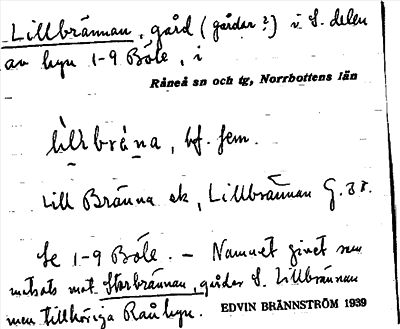 Lillbrännan, gård (gårdar?) i S. delen
av byn 1-9 Böle, i
Råneå sn och tg, Norrbottens län
bf. fem.
Lill Bränna ek, Lillbrännan G.
Se 1-9 Böle. - Namnet givet som
motsats mot Storbrännan, gårdar S. Lillbrännan
men tillhöriga Råbyn. EDVIN BRÄNNSTRÖM 1939